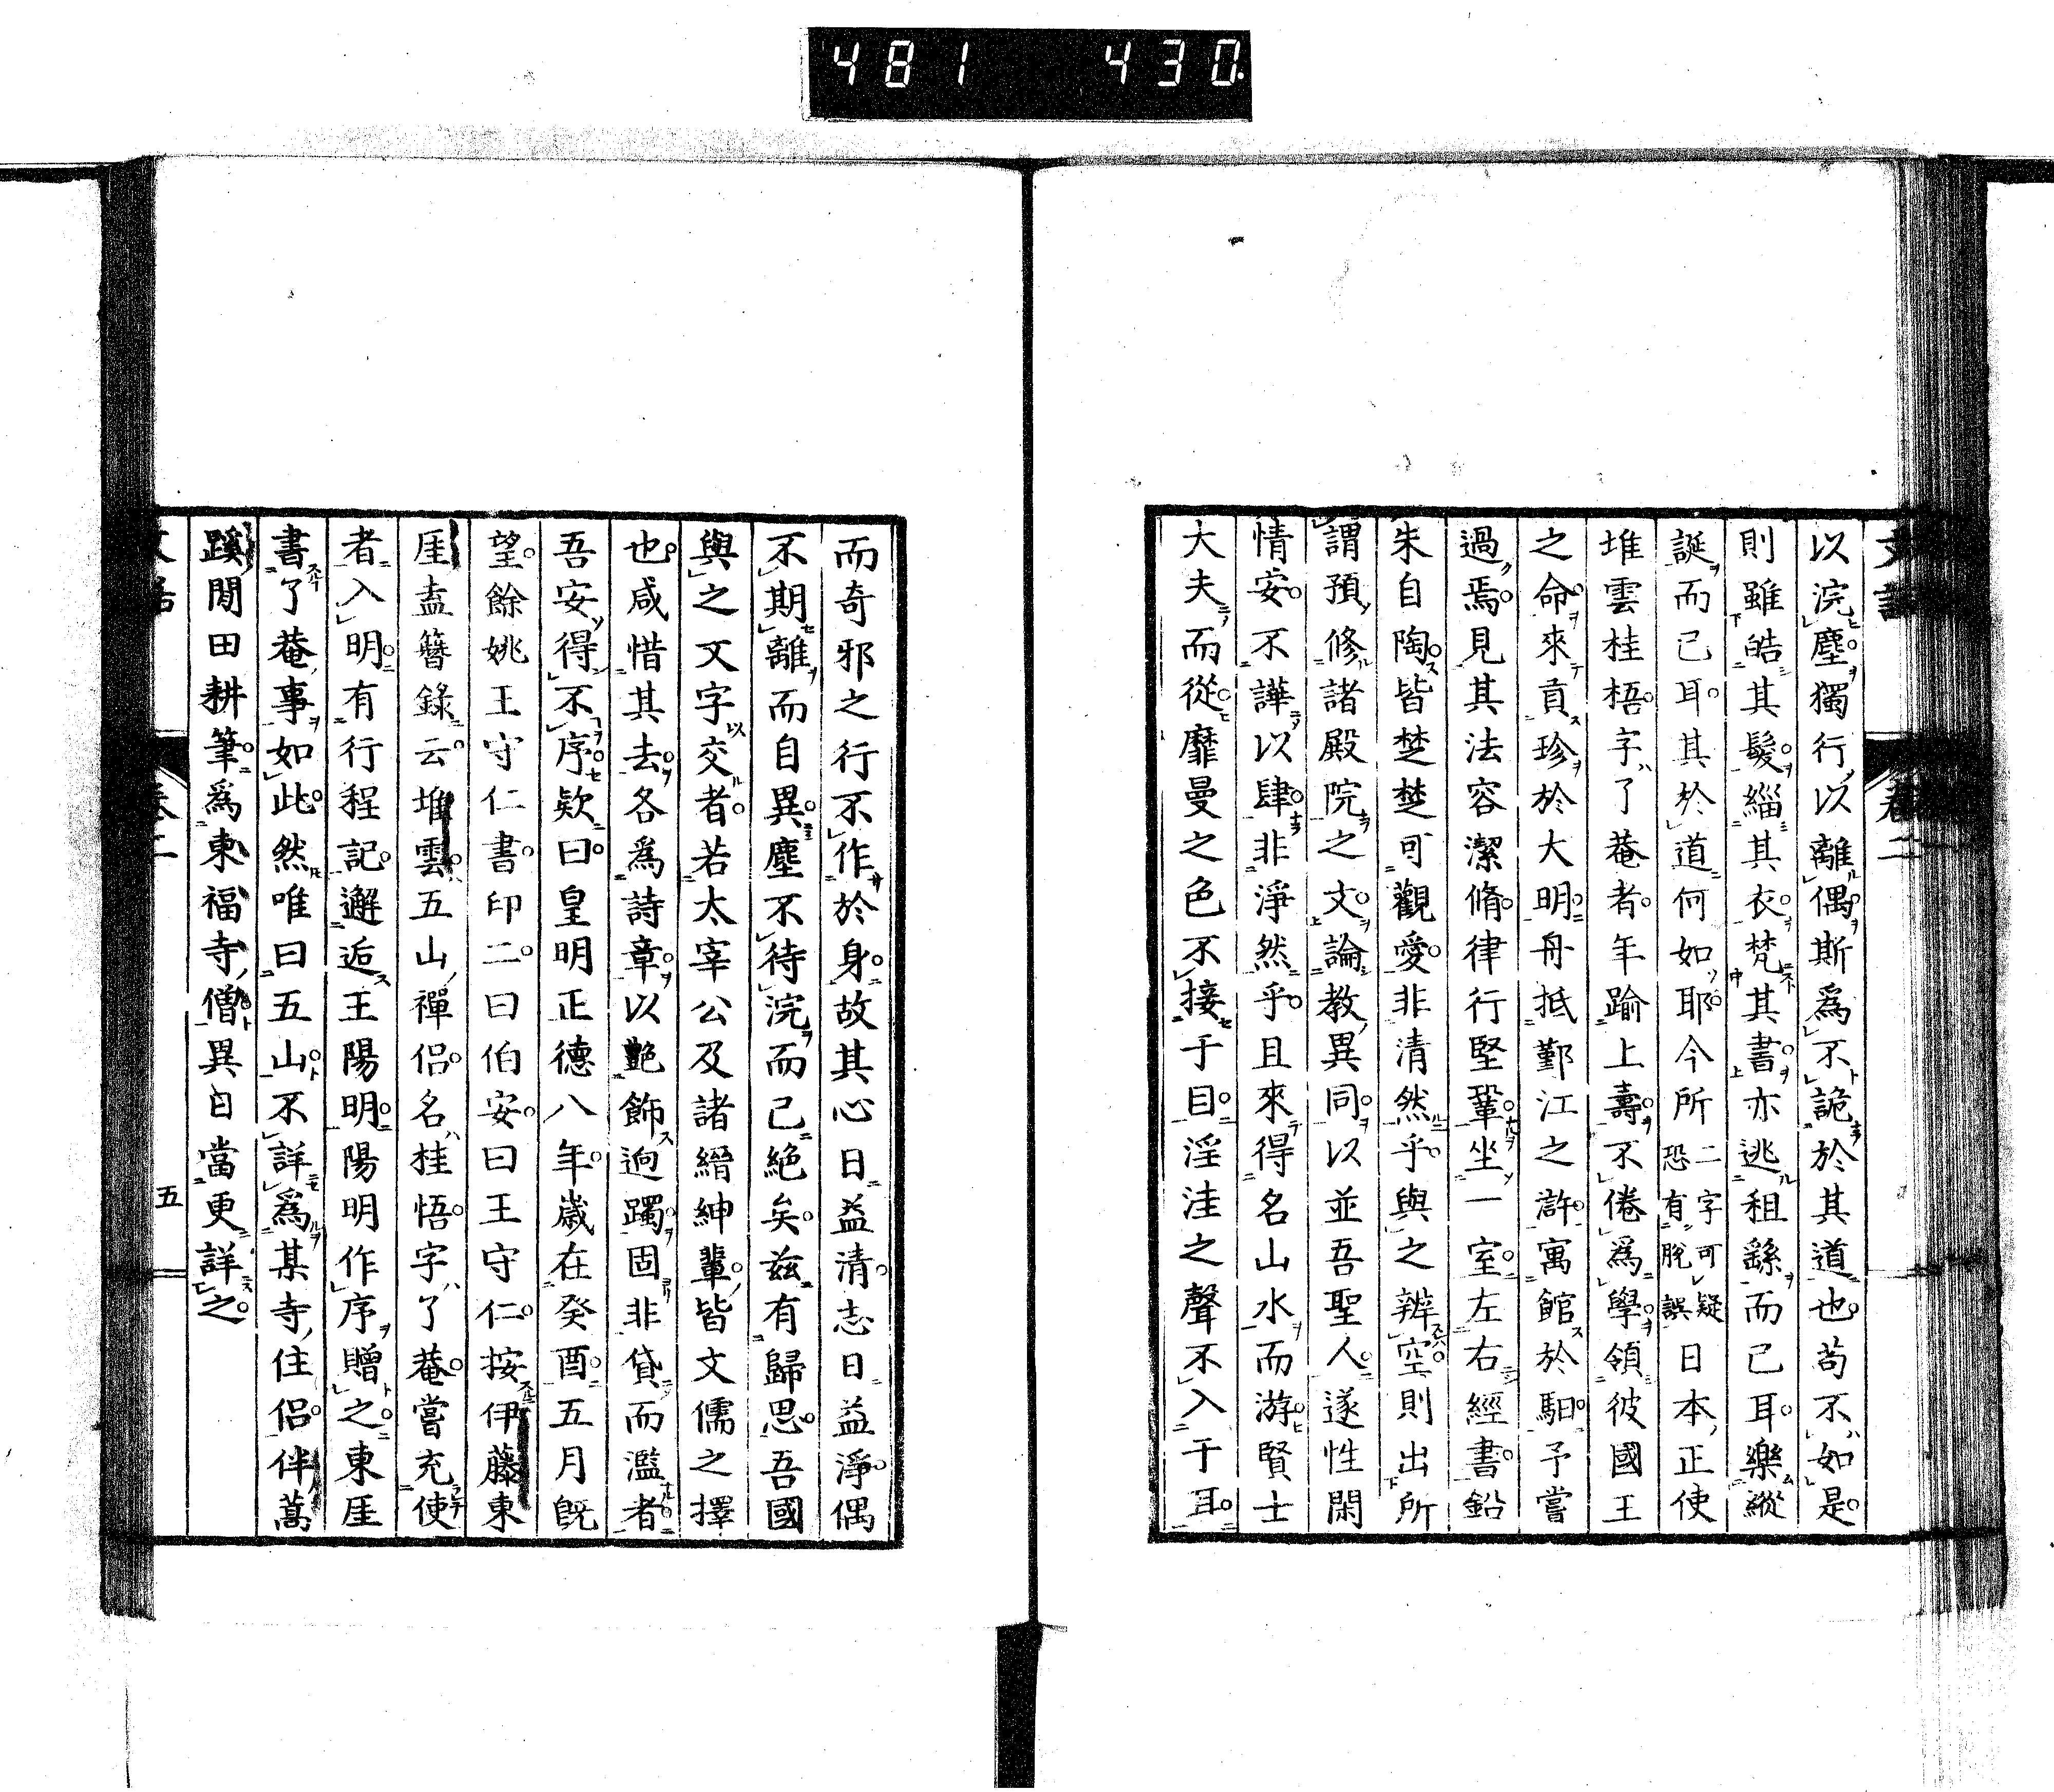 481 430
以浣塵獨行以離偶斯爲不詭於其道也苟不如是
則雖皓其髮緇其衣梵其書亦逃租繇而已耳樂縱
誕而已耳其於道何如耶今所二字可疑恐有脫誤日本正使
堆雲桂梧字了菴者年踰上壽不倦爲學領彼國王
之命來貢珍於大明舟抵鄞江之滸寓館於駟予嘗
過焉見其法容潔脩律行堅鞏坐一室左右經書鉛
朱自陶皆楚楚可觀愛非清然乎與之辨空則出所
謂預修諸殿院之文論教異同以並吾聖人遂性閑
情安不譁以肆非淨然乎且來得名山水而游賢士
大夫而從靡曼之色不接于目淫洼之聲不入于耳
而奇邪之行不作於身故其心日益清志日益淨偶
不期離而自異塵不待浣而已絕矣茲有歸思吾國
與之文字以交者若太宰公及諸縉紳輩皆文儒之擇
也咸惜其去各爲詩章以艷飾逈躅固非貸而濫者
吾安得不序歟曰皇明正德八年歲在癸酉五月旣
望餘姚王守仁書印二曰伯安曰王守仁按伊藤東
厓盍簪錄云堆雲五山禪侶名桂悟字了菴嘗充使
者入明有行程記邂逅王陽明陽明作序贈之東厓
書了菴事如此然唯曰五山不詳爲某寺住侶伴蒿
蹊閒田耕筆爲東福寺僧異日當更詳之
五